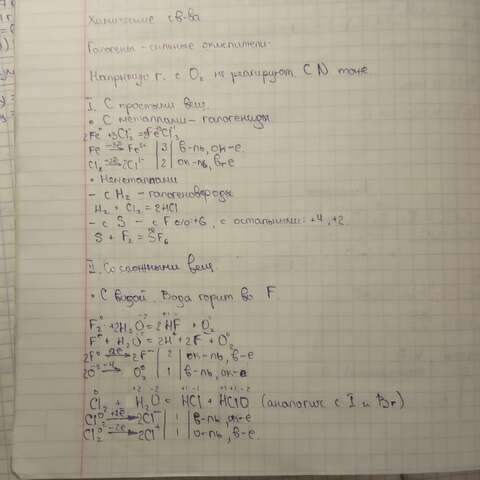 Химические св-ва
Галогены - сильные окислители.
Напрямую г. с O₂ не реагируют. С N тоже
I. С простыми вещ.
• С металлами - галогениды
2Fe⁰ + 3Cl₂⁰ = 2FeCl₃
Fe -3e→ Fe³⁺ | 3 | в-ль, ок-е.
Cl₂ → 2Cl¹⁻ | 2 | ок-ль, в-е
• Неметаллами
- с H₂ - галогеноводороды
H₂ + Cl₂ = 2HCl
- с S - с F с/о +6, с остальными: +4, +2.
S + F₂ = SF₆
II. Со сложными вещ.
• С водой. Вода горит во F
F₂⁰ + 2H₂O⁻² = 2HF⁻ + O₂⁰
F⁰ + H₂O = 2H⁺ 2F + O₂⁰
2F⁰ 2e→ 2F⁻ | 2 | ок-ль, в-е
2O⁻² -4→ O₂⁰ | 1 | в-ль, ок-е.
Cl₂⁰ + H₂O = HCl + HClO (аналогич с I и Br)
Cl₂⁰ +2e→ 2Cl⁻ | 1 | в-ль, ок-е
Cl₂⁰ -2e→ 2Cl⁺ | 1 | о-ль, в-е.